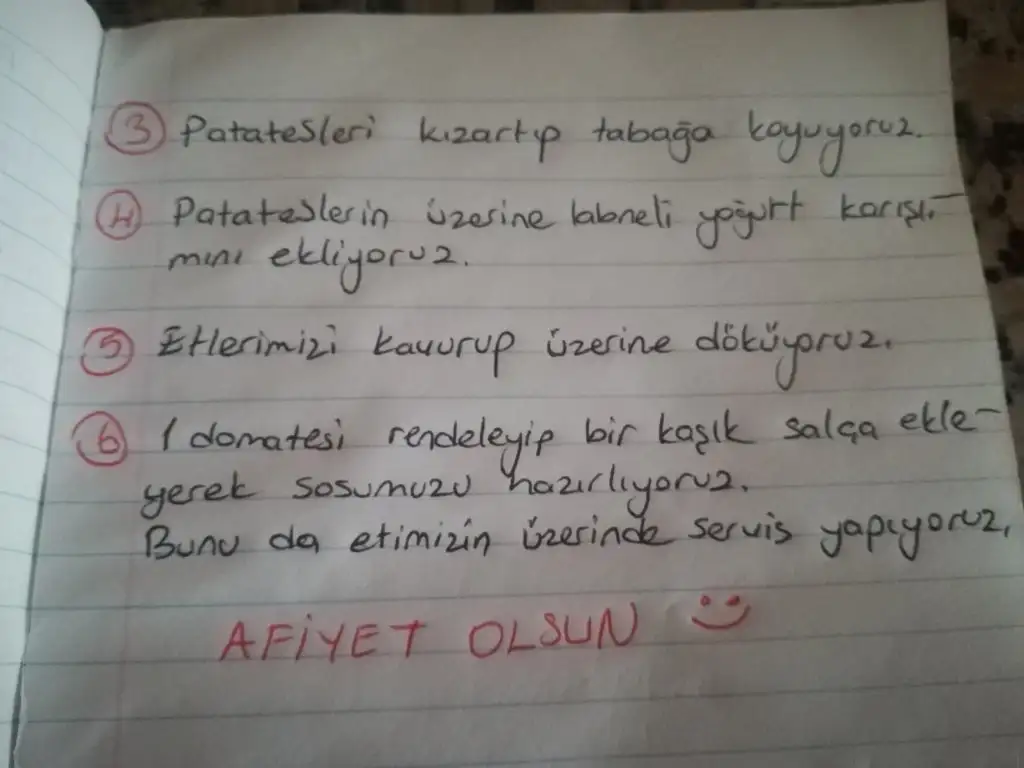 3 Patatesleri kızartıp tabağa koyuyoruz.
4 Patateslerin üzerine labneli yoğurt karışı-
mını ekliyoruz.
5 Etlerimizi kavurup üzerine döküyoruz.
6 1 domatesi rendeleyip bir kaşık salça ekle-
yerek sosumuzu hazırlıyoruz.
Bunu da etimizin üzerinde servis yapıyoruz.
AFİYET OLSUN